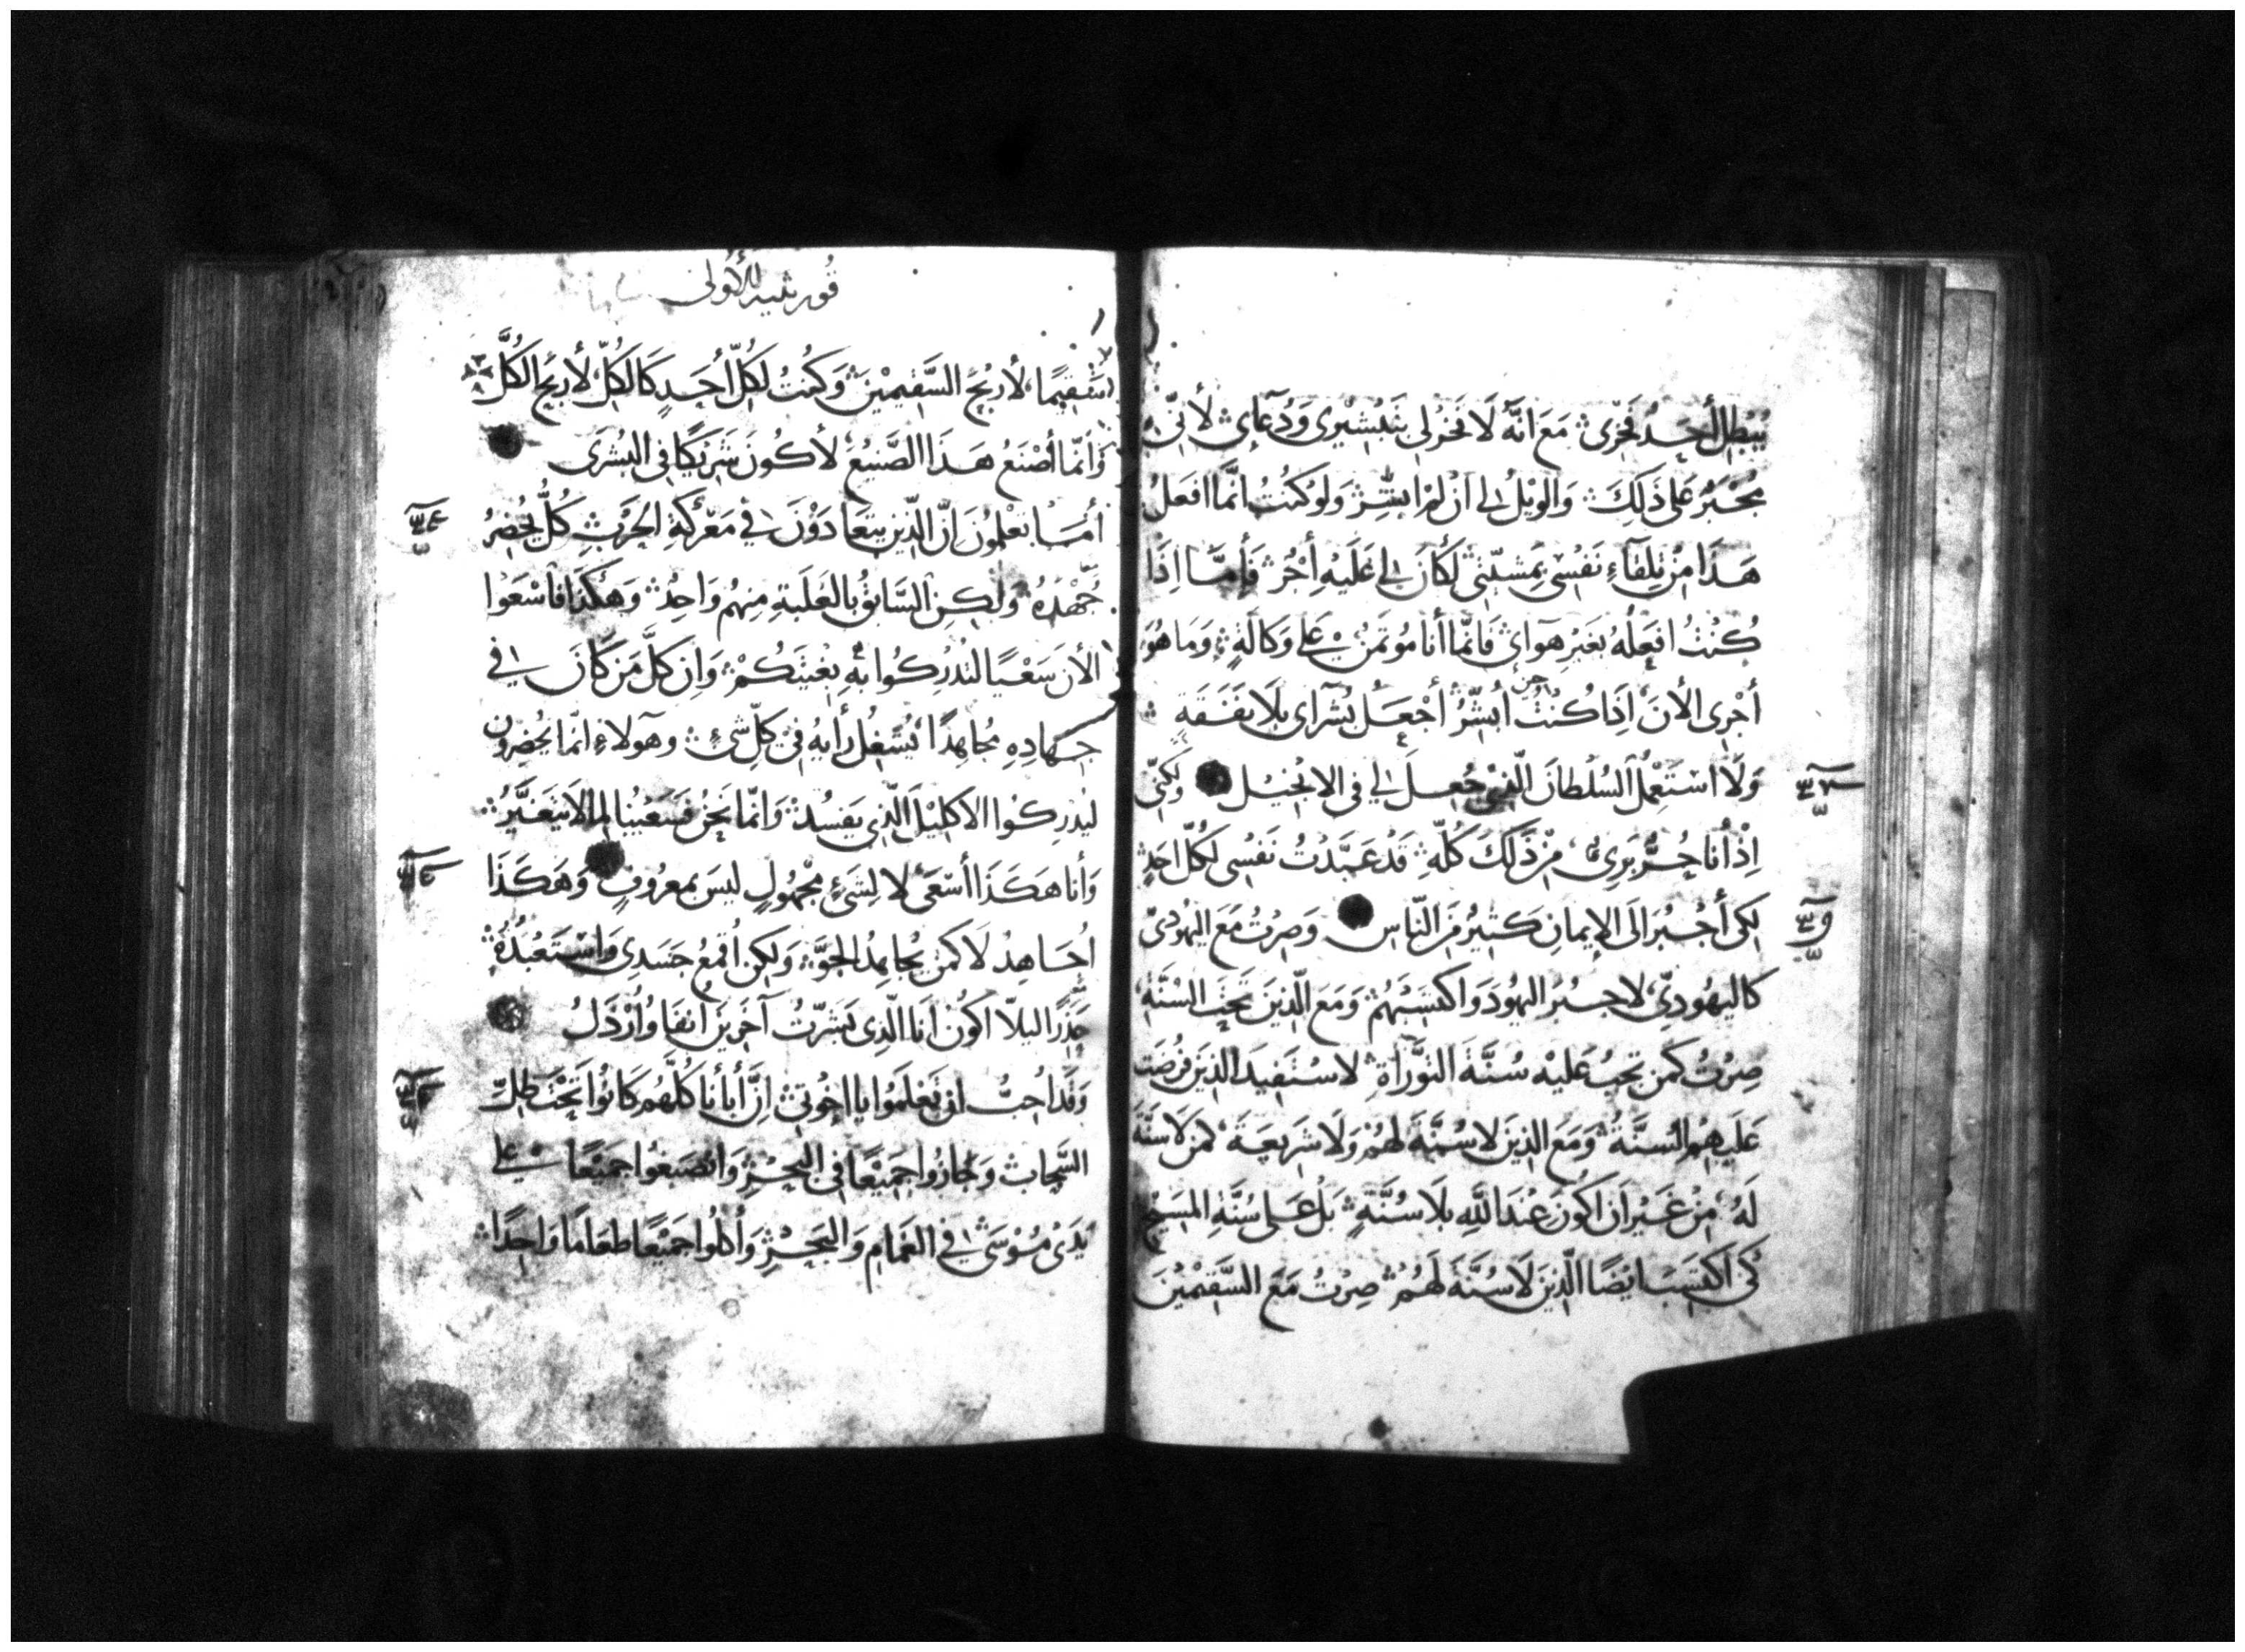 يُبْطِلَ أَحَدٌ فَخْرِى مَعَ انَّهُ لَا فَخْرَ لِى بِتَبْشِيْرِى وَدُعَاىِٔ لأَنِّى
مُجْبَرٌ عَلى ذَلِكَ وَالوَيْلُ لِى اَنْ لَمْ ابَشِّرْ وَلَوْ كُنْتُ انَّمَا افعَلُ
هَذَا مِنْ تِلْقَآءِ نَفْسِى بِمَشِيَّتِى لَكَانَ لِى عَلَيْهِ أَجْرٌ فَأَمَّا اِذَا
كُنْتُ افْعَلُهُ بِغَيْرِ هَوَاىَ فَانَّمَا أنا مُوتَمَنٌ عَلى وَكَالَةٍ وَمَا هُوَ
أجْرِى الأنَ اِذَا كُنْتُ أُبَشِّرُ أَجْعَلُ بُشْرَاى بِلَا نَفَقَةٍ
وَلَا اسْتَعْمِلُ السُّلْطَانَ الَّذِى جُعِلَ لِى فى الانْجِيْلِ وَلَكِنِّى
اِذْ أَنَا حُرٌّ بَرِىٌٔ مِنْ ذَلِكَ كُلِّهِ قَدْ عَبَّدْتُ نَفْسِى لِكُلِّ احَدٍ
لِكَى أَجْبُرَ الَى الإِيمَانِ كَثِيْرٌ مِنَ النَّاسِ وَصِرْتُ مَعَ اليَهُودِىّ
كَاليَهُودِىِّ لاجْبُرَ اليَهُودَ وَاكتَسِبَهُمْ وَمَعَ الَّذِينَ تَحْتَ السُّنَّةِ
صِرْتُ كَمَن تَجِبُ عَلَيْهِ سُنَّةُ التَّوْرَاةِ لاسْتَفِيدَ الَّذِينَ فُرِضَت
عَلَيهِمُ السُّنَّةُ وَمَعَ الَّذِينَ لا سُنَّةَ لَهُمْ وَلَا شَرِيعَةَ كَمَن لَا سُنَّةَ
لَهُ مِنْ غَيْرِ اَن اكُونَ عِنْدَ اللَّهِ بِلَا سُنَّةٍ بَلْ عَلى سُنَّةِ المَسِيْحِ
كَى اكْتَسِبَ ايْضًا الَّذِينَ لَا سُنَّةَ لَهُمْ صِرْتُ مَعَ السَّقِيْمِيْنَ
قورنثيه الأولى
سَقِيمًا لأَرْبَحَ السَّقِيمِيْنَ وَكُنتُ لِكُلِّ أحَدٍ كَالكُلِّ لأَربَحَ الكُلَّ
وَانَّمَا أَصْنَعُ هَذَا الصَّنِيْعَ لأكُونَ شَرِيْكًا فى البُشْرَى
أَمَا تَعْلَمُونَ اِنَّ الَّذِينَ يَتَعَادَوْنَ فى مَعْرَكَةِ الحَرْبِ كُلٌّ يُحْضِرُ
جُهْدَهُ وَلَكِنِ السَّابِقُ بِالغَلَبَةِ مِنهُم وَاحِدٌ وَهَكَذَا فَاسْعَوْا
الأنَ سَعْيًا لتُدْرِكُوا بِهِ بِغْيَتَكُمْ وَاِن كلَّ مَن كَانَ فى
جِهَادِهِ مُجَاهِدًا يَشْغِلُ رأيَهُ فى كلِّ شىءٍ وهَولَاءِ انَّمَا يُحْضِرُونَ
ليُدْرِكُوا الاكْلِيْلَ الَّذِى يَفسُدُ وَانَّمَا نَحْنُ فَسَعْيُنَا لِمَا لا يَتَغَيَّرُ
وَأنا هَكَذَا أَسْعَى لا لِشَىْءٍ مَجْهُولٍ لَيسَ بِمَعْرُوفٍ وَهَكَذَا
أُجَاهِدُ لَا كَمَن يُجَاهِدُ الجَوَّ وَلَكِن أَقْمَعُ جَسَدِى وَاسْتَعْبِدُهُ
حَذَرًا ليَلَّا اكُونَ أنَا الَّذِى بَشَّرْتُ آخَرِيْنَ اُنفَا وَأُرْذَلُ
وَقَد أُحِبُّ ان تَعْلَمُوا يا اخْوتِى اِنَّ أَبَأنَا كُلَّهُم كَانُوا تَحْتَ ظِلِّ
السَّحَابِ وَجَازُوا جَمِيْعًا فى البَحْرِ وَانْصَبَغُوا جَمِيْعًا عَلى
يَدَىْ مُوْسَى فى الغَمَامِ وَالبَحْرِ وَأكَلُوا جَمِيْعًا طَعَامًا وَاحِدًا